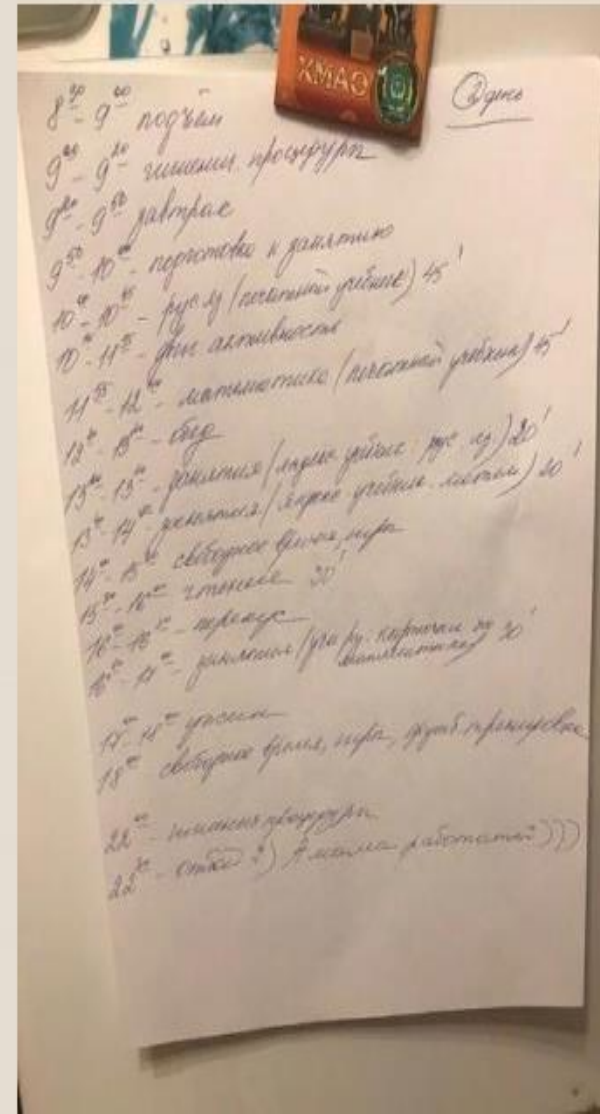 ХМАО
2 день
8³⁰ - 9⁰⁰ подъём
9⁰⁰ - 9²⁰ гигиенич. процедуры
9²⁰ - 9⁵⁰ завтрак
9⁵⁰ - 10⁰⁰ - подготовка к занятию
10⁰⁰ - 10⁴⁵ - рус.яз (печатный учебник) 45'
10⁴⁵ - 11⁵⁵ - физ активность
11⁵⁵ - 12⁴⁰ - математика (печатный учебник) 45'
12⁴⁰ - 13⁰⁰ - обед
занятия (яндекс учебник рус. яз) 20'
занятия (яндекс учебник матем) 20'
свободное время, игры
чтение 30'
перекус
занятия (учи ру. карточки по математике) 30'
17⁰⁰ - 18⁰⁰ ужин
18⁰⁰ свободное время, игры, тренировка
22⁰⁰ - гигиенич процедуры
22³⁰ - отбой :) А мама работать)))